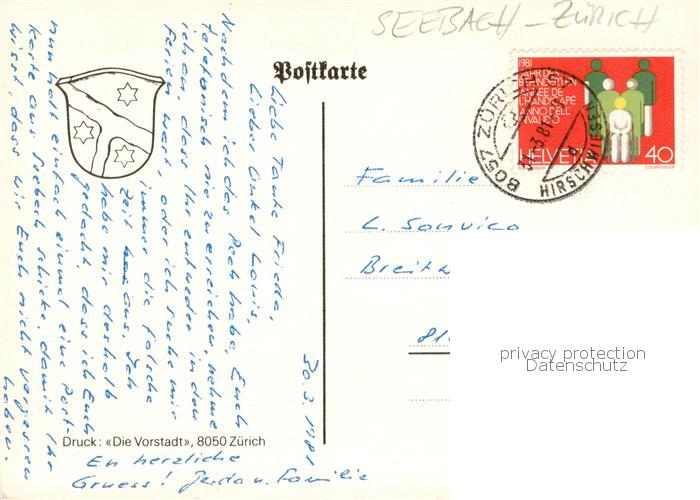 SEEBACH – ZÜRICH
Postkarte
1981
JAHR DER
BEHINDERTEN
ANNEE DE
L'HANDICAPE
ANNO DELL'
INVALIDO
HELVETIA 40
8057 ZÜRICH
HIRSCHWIESEN
30.3.1981
Liebe Tante Frieda,
lieber Onkel Louis,
Nachdem ich das Pech habe, Euch
telefonisch nie zu erreichen, nehme
ich an, dass Ihr entweder in den
Ferien wart, oder ich suche mir
immer die falsche
Zeit aus. Ich
habe mir deshalb
gedacht, dass ich Euch
nun halt einfach einmal eine Post-
karte aus Seebach schicke, damit Ihr
wisst, dass wir Euch nicht vergessen
haben.
En herzliche
Gruess! Gerda u. Familie
Familie
L. Sanvico
Breitw
81
privacy protection
Datenschutz
Druck: «Die Vorstadt», 8050 Zürich